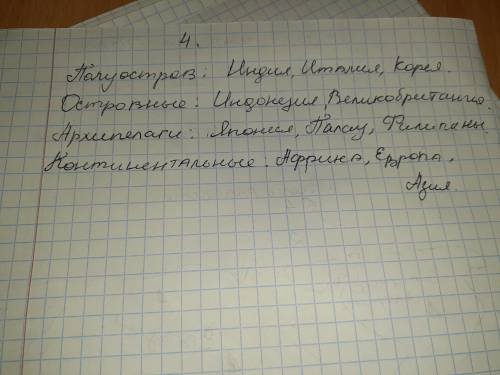 4.
Полуостров: Индия, Италия, Корея.
Островные: Индонезия, Великобритания.
Архипелаги: Япония, Палау, Филипины
Континентальные. Африка, Европа,
Азия